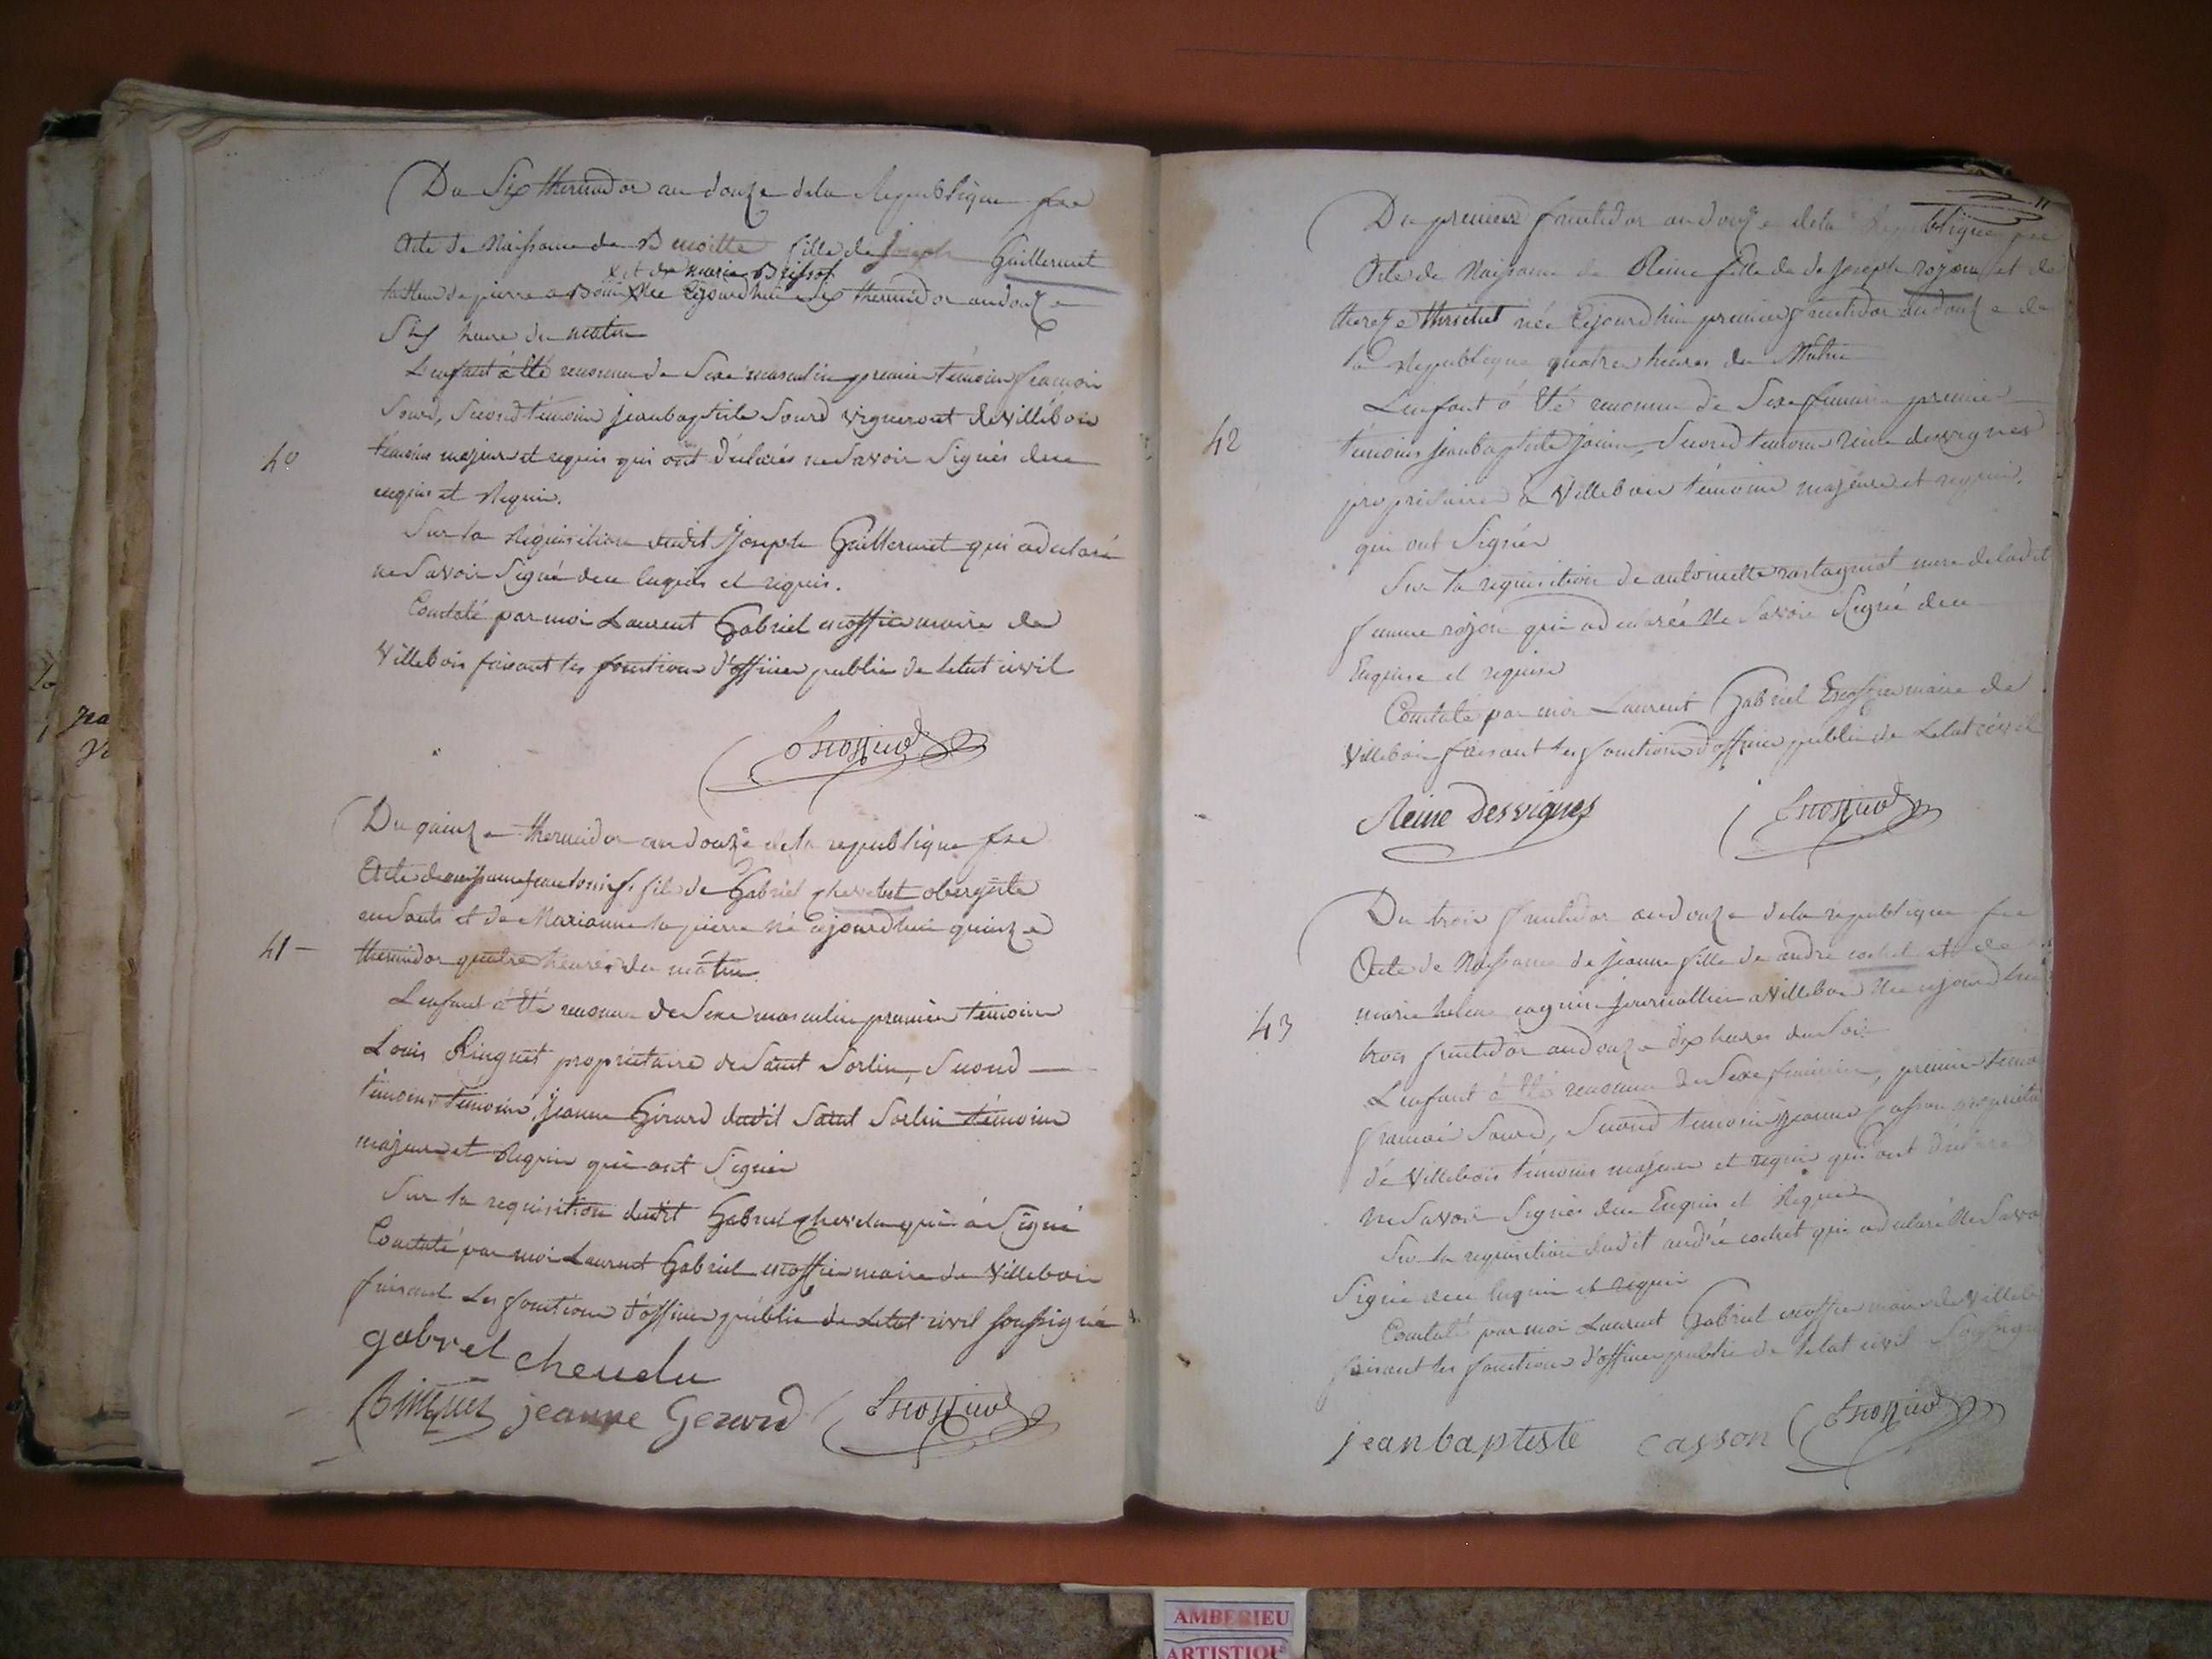 Du Six thermidor an douze dela Republique fse
Acte de Naissance de Benoitte fille de Joseph Guillermet
x et de marie Brissot
tailleur de pierre a Bouis Née Cejourdhui Six thermidor an douze
Six heure du matin
L'enfant à été reconnu de Sexe masculin premier témoin francois
Sourd, Second témoin jeanbaptiste Sourd vigneront de Villebois
40
témoins majeur et requis qui ont déclarés ne Savoir Signés deux
enquis et Requis.
Sur la Réquisition dudit Joseph Guillermet qui a déclaré
ne Savoir Signé deux Enquis et requis.
Constaté par moi Laurent Gabriel escoffier maire de
Villebois faisant les fonctions d'officier public de letat civil
Escoffier
Du quinze thermidor an douze dela republique fse
Acte de naissance fils de Gabriel chevelut obergiste
en Sault et de Marianne la pierre né Cejourdhui quinze
41 -
thermidor quatre heures du matin
L'enfant à été reconnu de Sexe masculin premier témoin
Louis Ringuet propriétaire de Saint Sorlin, Second
témoins témoins, jeanne Girard dudit Saint Sorlin témoins
majeur et Requis qui ont Signés
Sur la requisition dudit Gabriel chevelu qui à Signé
Constaté par moi Laurent Gabriel escoffier maire de Villebois
faisant les fonctions d'officier public de letat civil soussigné
gabrel cheuelu
Ringuet jeanne Gerard Escoffier
11
Du premier fructidor an douze dela Republique fse
Acte de Naissance de Reine fille de de Joseph rojon et de
thereze thrichet née Cejourdhui premier fructidor an douze de
la Republique quatre heures du Matin
L'enfant à été reconnu de Sexe feminin premier
42
témoins jeanbaptiste Second temoins reine desvignes
propriétaires a Villebois témoins majeurs et requis.
qui ont Signés
Sur la requisition de antoinette rostagniat mere deladit
femme rojon qui a déclarée Ne Savoir Signé deu
Enquise et requise
Constaté par moi Laurent Gabriel Escoffier maire de
Villebois faisant les fonctions d'officier public de Letat civil
Reine Desvignes Escoffier
Du trois fructidor an douze dela république fse
Acte de Naissance de jeanne fille de andré cochet et de
marie helene cagnin journallier a Villebois Née cejourdhui
43
trois fructidor an douze dix heures du Soir
L'enfant à été reconnu de Sexe feminin, premier temoi
francois Sourd, Second temoins jeanne casson propriéta
de Villebois témoins majeur et requis qui ont déclaré
ne Savoir Signés deu Enquis et Requis
Sur la requisition dudit andré cochet qui a déclaré Ne Savo
Signé deu Enquis et requis
Constaté par moi Laurent Gabriel escoffier maire de Villeb
faisant les fonctions d'officier public de letat civil Soussign
jeanbaptiste casson Escoffier
AMBERIEU
ARTISTIQU